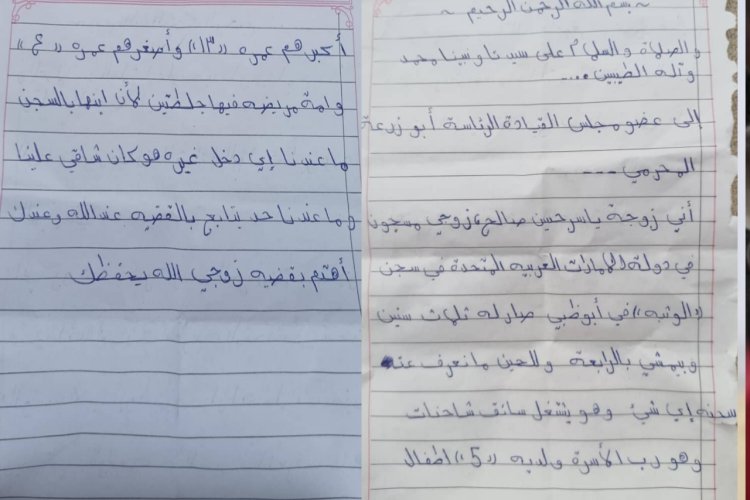 ~ بسم الله الرحمن الرحيم ~
والصلاة والسلام على سيدنا ونبينا محمد
وآله الطيبين ....
إلى عضو مجلس القيادة الرئاسة أبو زرعة
المحرمي ---
أني زوجة ياسر حسين صالح، زوجي مسجون
في دولة الامارات العربيه المتحدة في سجن
«الوثبه» في أبوظبي صار له ثلاث سنين
ويمشي بالرابعة والحين مانعرف عنه
إي شيء وهو يشتغل سائق شاحنات
وهو رب الأسرة ولديه «5» اطفال
أكبرهم عمره «١٣» وأصغرهم عمره «٤»
وامه مريضه فيها جلطتين لأن ابنها بالسجن
ماعندنا إي دخل غيره هو كان شاقي علينا
وماعندنا حد يتابع بالقضيه عندالله وعندك
أهتم بقضيه زوجي الله يحفظك